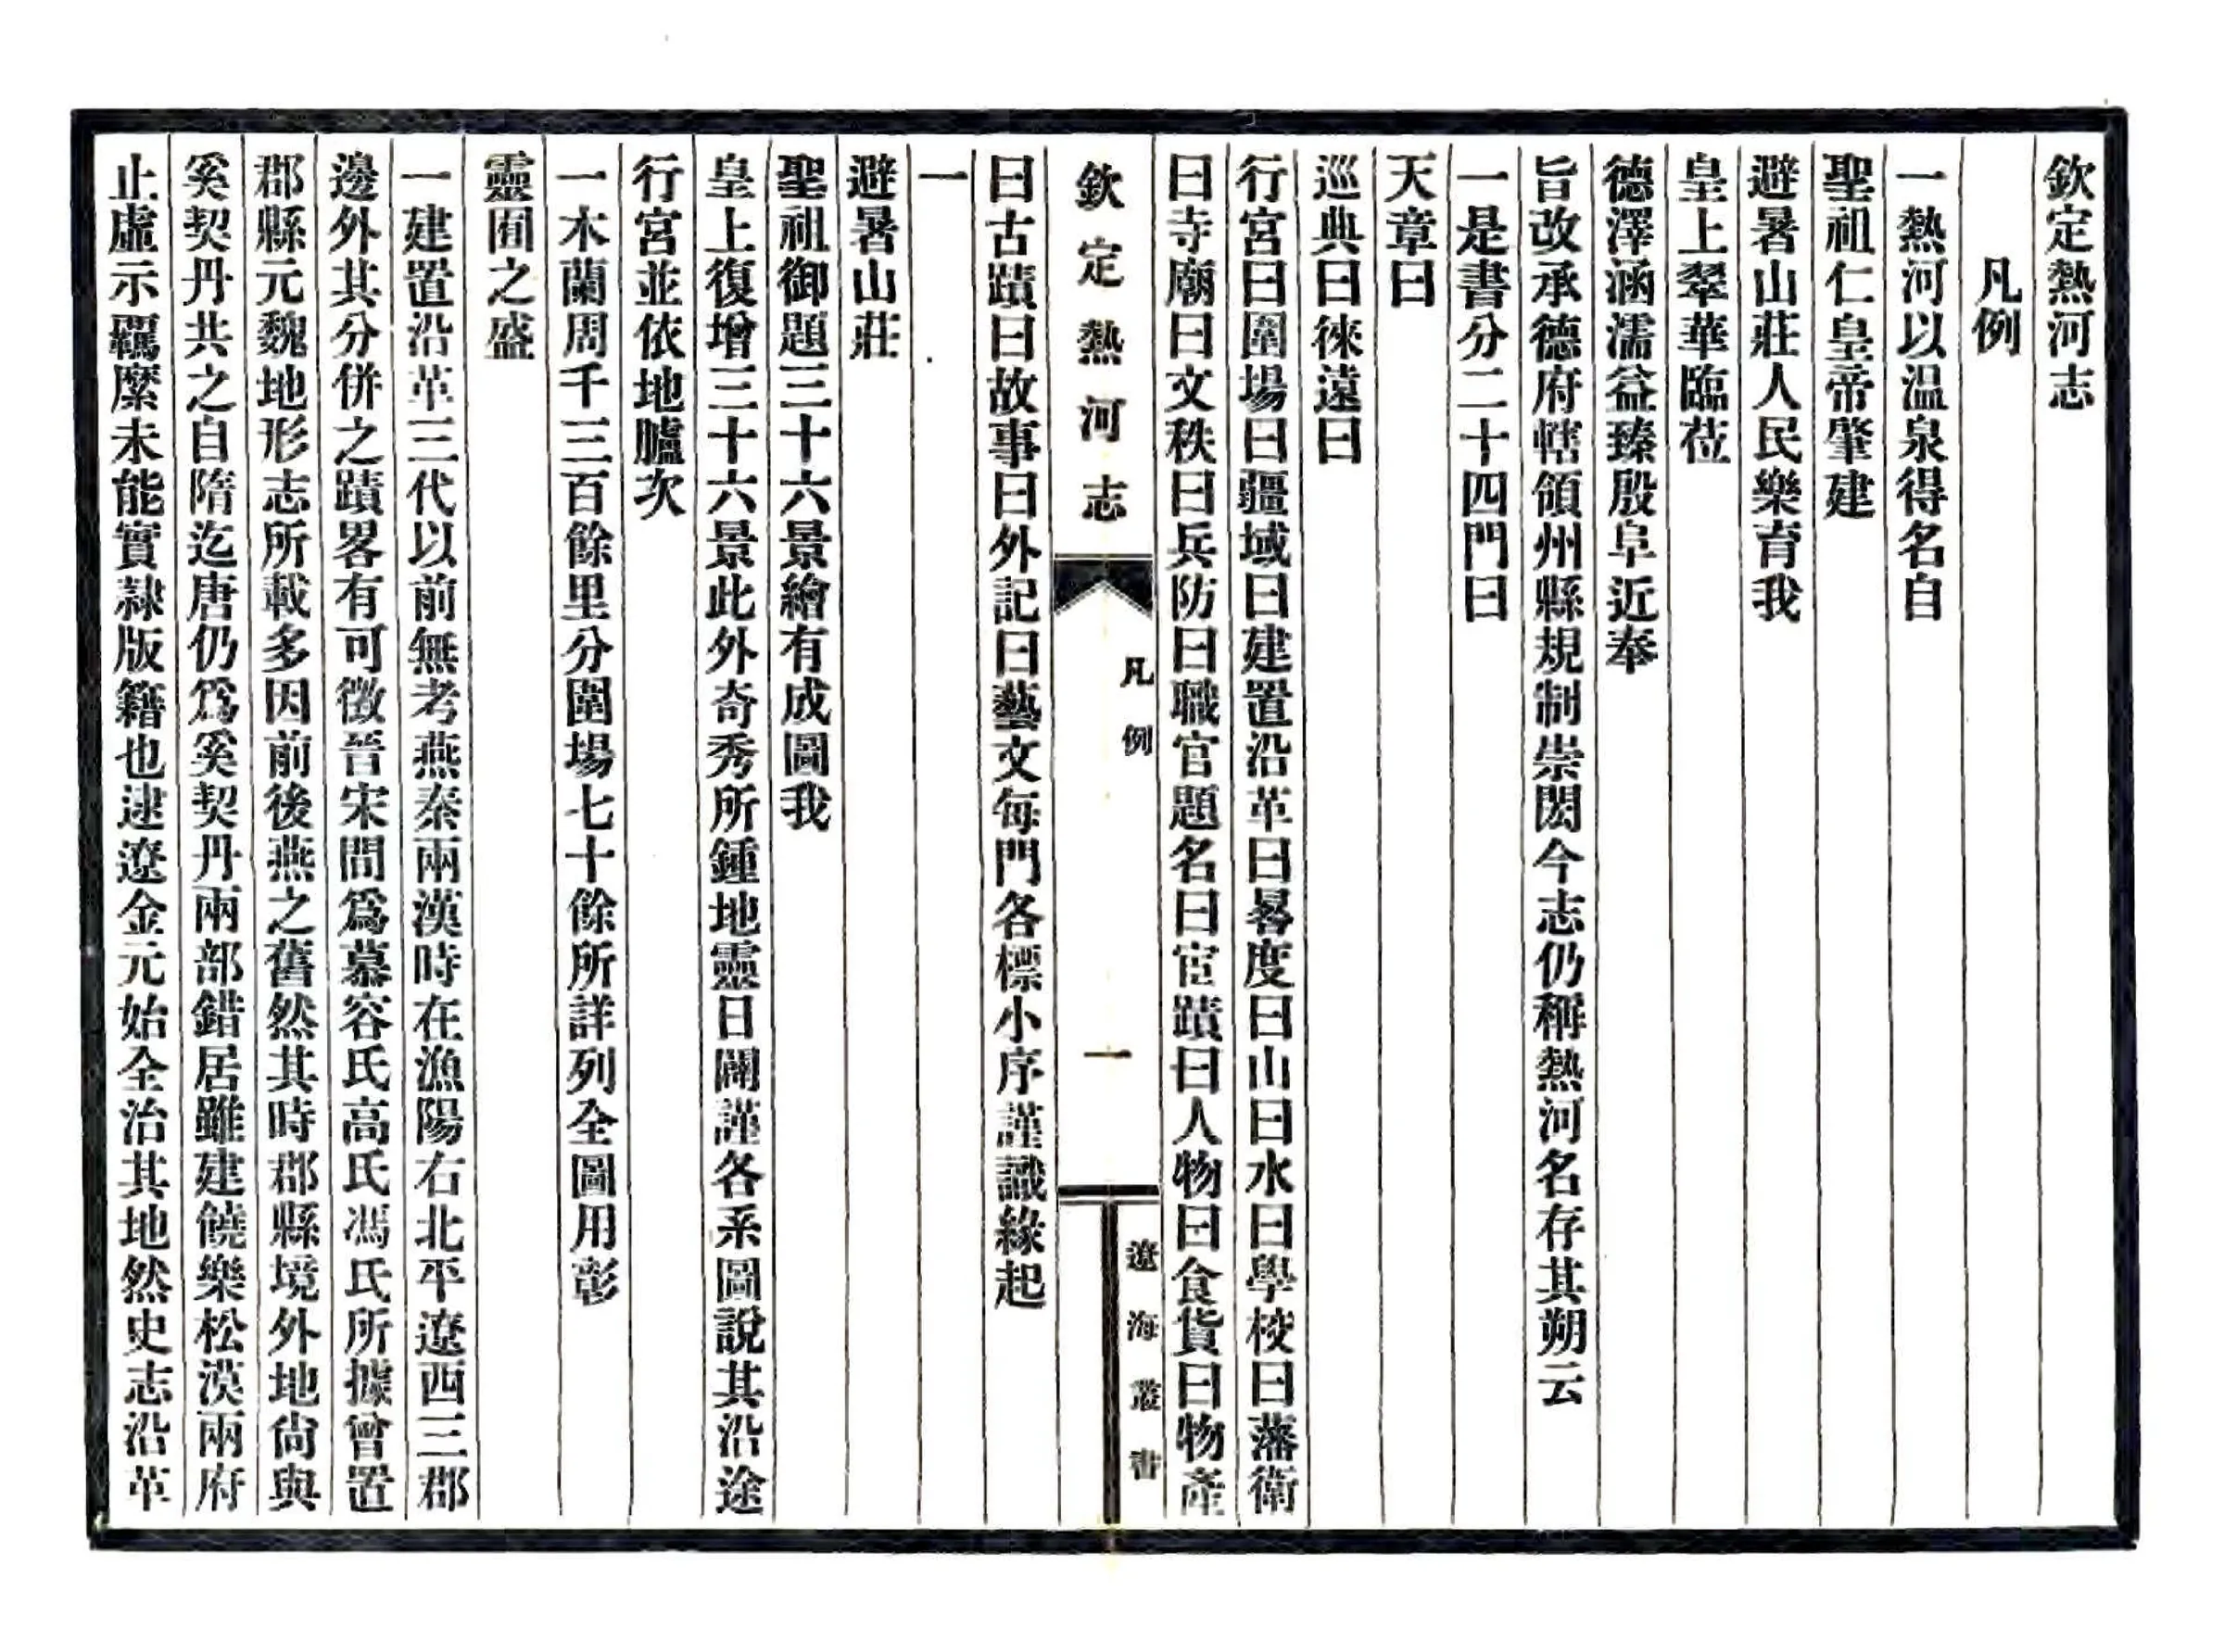 欽定熱河志
凡例
一熱河以温泉得名自
聖祖仁皇帝肇建
避暑山莊人民樂育我
皇上翠華臨莅
德澤涵濡益臻殷阜近奉
旨改承德府轄領州縣規制崇閎今志仍稱熱河名存其朔云
一是書分二十四門曰
天章曰
巡典曰徠遠曰
行宮曰圍場曰疆域曰建置沿革曰晷度曰山曰水曰學校曰藩衛
曰寺廟曰文秩曰兵防曰職官題名曰宦蹟曰人物曰食貨曰物產
欽定熱河志
凡例
一
遼海叢書
曰古蹟曰故事曰外記曰藝文每門各標小序謹識緣起
一
避暑山莊
聖祖御題三十六景繪有成圖我
皇上復增三十六景此外奇秀所鍾地靈日闢謹各系圖說其沿途
行宮並依地臚次
一木蘭周千三百餘里分圍場七十餘所詳列全圖用彰
靈囿之盛
一建置沿革三代以前無考燕秦兩漢時在漁陽右北平遼西三郡
邊外其分併之蹟畧有可徵晉宋間爲慕容氏高氏馮氏所據曾置
郡縣元魏地形志所載多因前後燕之舊然其時郡縣境外地尙與
奚契丹共之自隋迄唐仍爲奚契丹兩部錯居雖建饒樂松漠兩府
止虛示羈縻未能實隸版籍也逮遼金元始全治其地然史志沿革